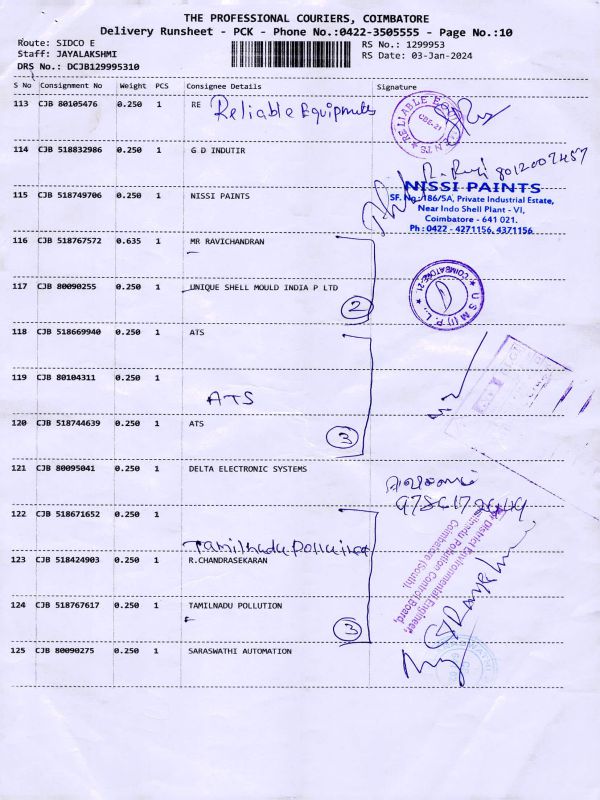 THE PROFESSIONAL COURIERS, COIMBATORE
Delivery Runsheet - PCK - Phone No.:0422-3505555 - Page No.:10
Route: SIDCO E
Staff: JAYALAKSHMI
DRS No.: DCJB129995310
RS No.: 1299953
RS Date: 03-Jan-2024
S No Consignment No Weight PCS Consignee Details Signature
113 CJB 80105476 0.250 1 RE Reliable Equipments
RELIABLE EQUIPMENTS CBE-21
114 CJB 518832986 0.250 1 G D INDUTIR
8012007457
115 CJB 518749706 0.250 1 NISSI PAINTS
NISSI PAINTS
SF. No : 186/5A, Private Industrial Estate,
Near Indo Shell Plant - VI,
Coimbatore - 641 021.
Ph : 0422 - 4271156, 4371156
116 CJB 518767572 0.635 1 MR RAVICHANDRAN
117 CJB 80090255 0.250 1 UNIQUE SHELL MOULD INDIA P LTD
2
U S M (I) P. L., COIMBATORE-21
118 CJB 518669940 0.250 1 ATS
119 CJB 80104311 0.250 1
ATS
120 CJB 518744639 0.250 1 ATS
3
121 CJB 80095041 0.250 1 DELTA ELECTRONIC SYSTEMS
122 CJB 518671652 0.250 1
Tamilnadu Pollution
123 CJB 518424903 0.250 1 R.CHANDRASEKARAN
District Environmental Engineer,
Tamilnadu Pollution Control Board,
Coimbatore (South),
124 CJB 518767617 0.250 1 TAMILNADU POLLUTION
3
125 CJB 80090275 0.250 1 SARASWATHI AUTOMATION